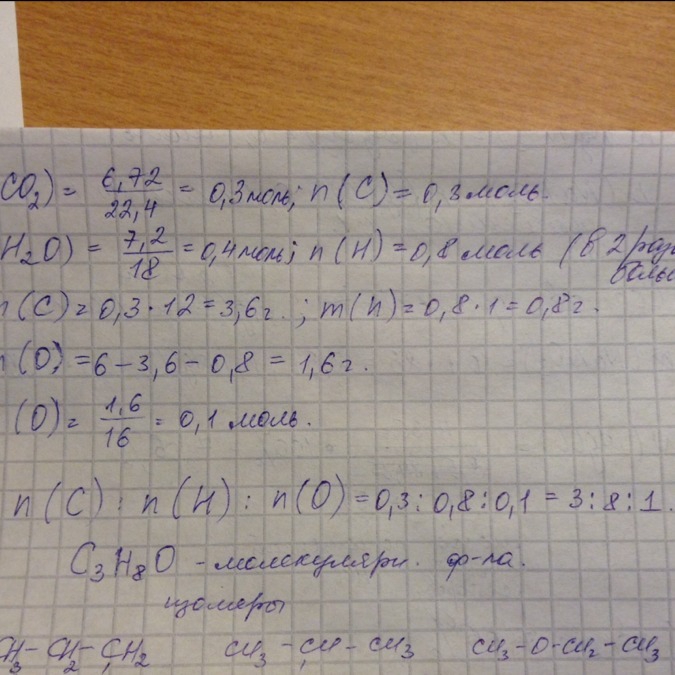 CO₂) = 6,72/22,4 = 0,3 моль; n(C) = 0,3 моль.
H₂O) = 7,2/18 = 0,4 моль; n(H) = 0,8 моль (в 2 раз
больш
m(C) = 0,3 · 12 = 3,6 г. ; m(H) = 0,8 · 1 = 0,8 г.
(O) = 6 - 3,6 - 0,8 = 1,6 г.
(O) = 1,6/16 = 0,1 моль.
n(C) : n(H) : n(O) = 0,3 : 0,8 : 0,1 = 3 : 8 : 1.
C₃H₈O - молекулярн. ф-ла.
изомеры
CH₃ - CH₂ - CH₂ CH₃ - CH - CH₃ CH₃ - O - CH₂ - CH₃